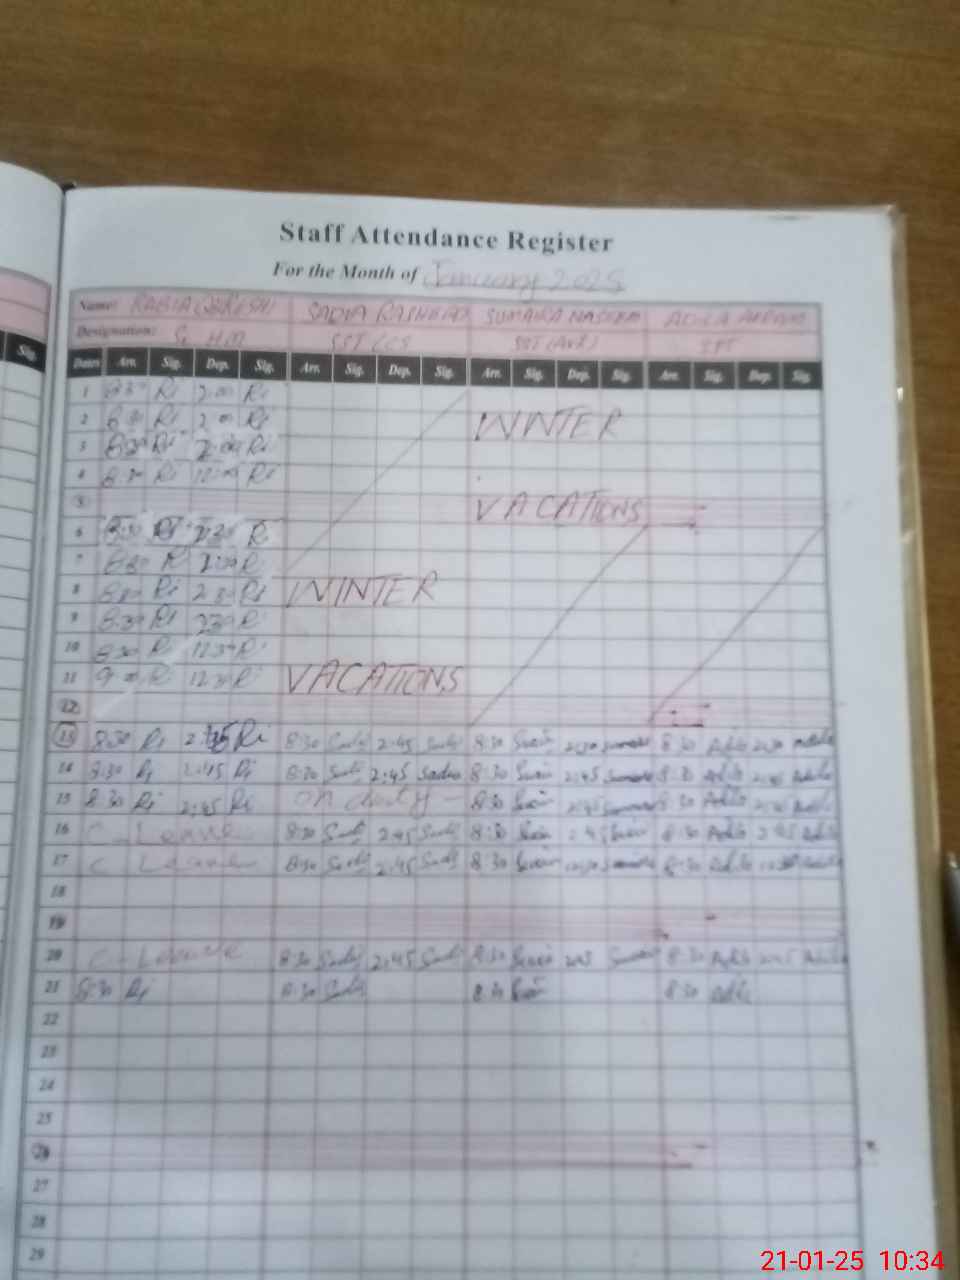 Staff Attendance Register
For the Month of January 2025
Name: RABIA QURESHI SADIA RASHEED SUMAIRA NASEEM ADILA
Designation: S. HM SST (CS SST
Sig. Dates Arr. Sig. Dep. Sig. Arr. Sig. Dep. Sig. Arr. Sig. Dep. Sig. Arr. Sig. Dep. Sig.
1 8:30 Ri 2:00 Ri
2 8:30 Ri 2:00 Ri WINTER
3 8:30 Ri 2:00 Ri
4 8:30 Ri 12:00 Ri
5 VACATIONS
6 8:30 Ri 2:30 Ri
7 8:30 Ri 2:00 Ri
8 8:30 Ri 2:30 Ri WINTER
9 8:30 Ri 2:30 Ri
10 8:30 Ri 12:30 Ri
11 9:00 Ri 12:30 Ri VACATIONS
12
13 8:30 Ri 2:45 Ri 8:30 Sadi 2:45 Sadi 8:30 8:30 Adila
14 8:30 Ri 2:45 Ri 8:30 Sadi 2:45 Sadia 8:30 2:45 8:30 Adila 2:45 Adila
15 8:30 Ri 2:45 Ri on duty - 8:30 2:45 8:30 Adila 2:45 Adila
16 C - Leave 8:30 Sadi 2:45 Sadi 8:30 2:45 8:30 Adila 2:45 Adila
17 C Leave 8:30 Sadi 2:45 Sadi 8:30 8:30 Adila
18
19
20 C - Leave 8:30 Sadi 2:45 Sadi 8:30 2:45 8:30 Adila 2:45 Adila
21 8:30 Ri 8:30 Sadi 8:30 8:30 Adila
22
23
24
25
26
27
28
29
21-01-25 10:34